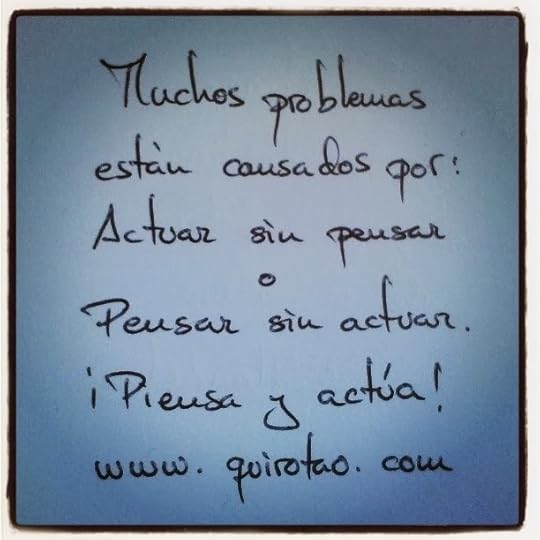 Muchos problemas
están causados por:
Actuar sin pensar
o
Pensar sin actuar.
¡Piensa y actúa!
www.quirotao.com